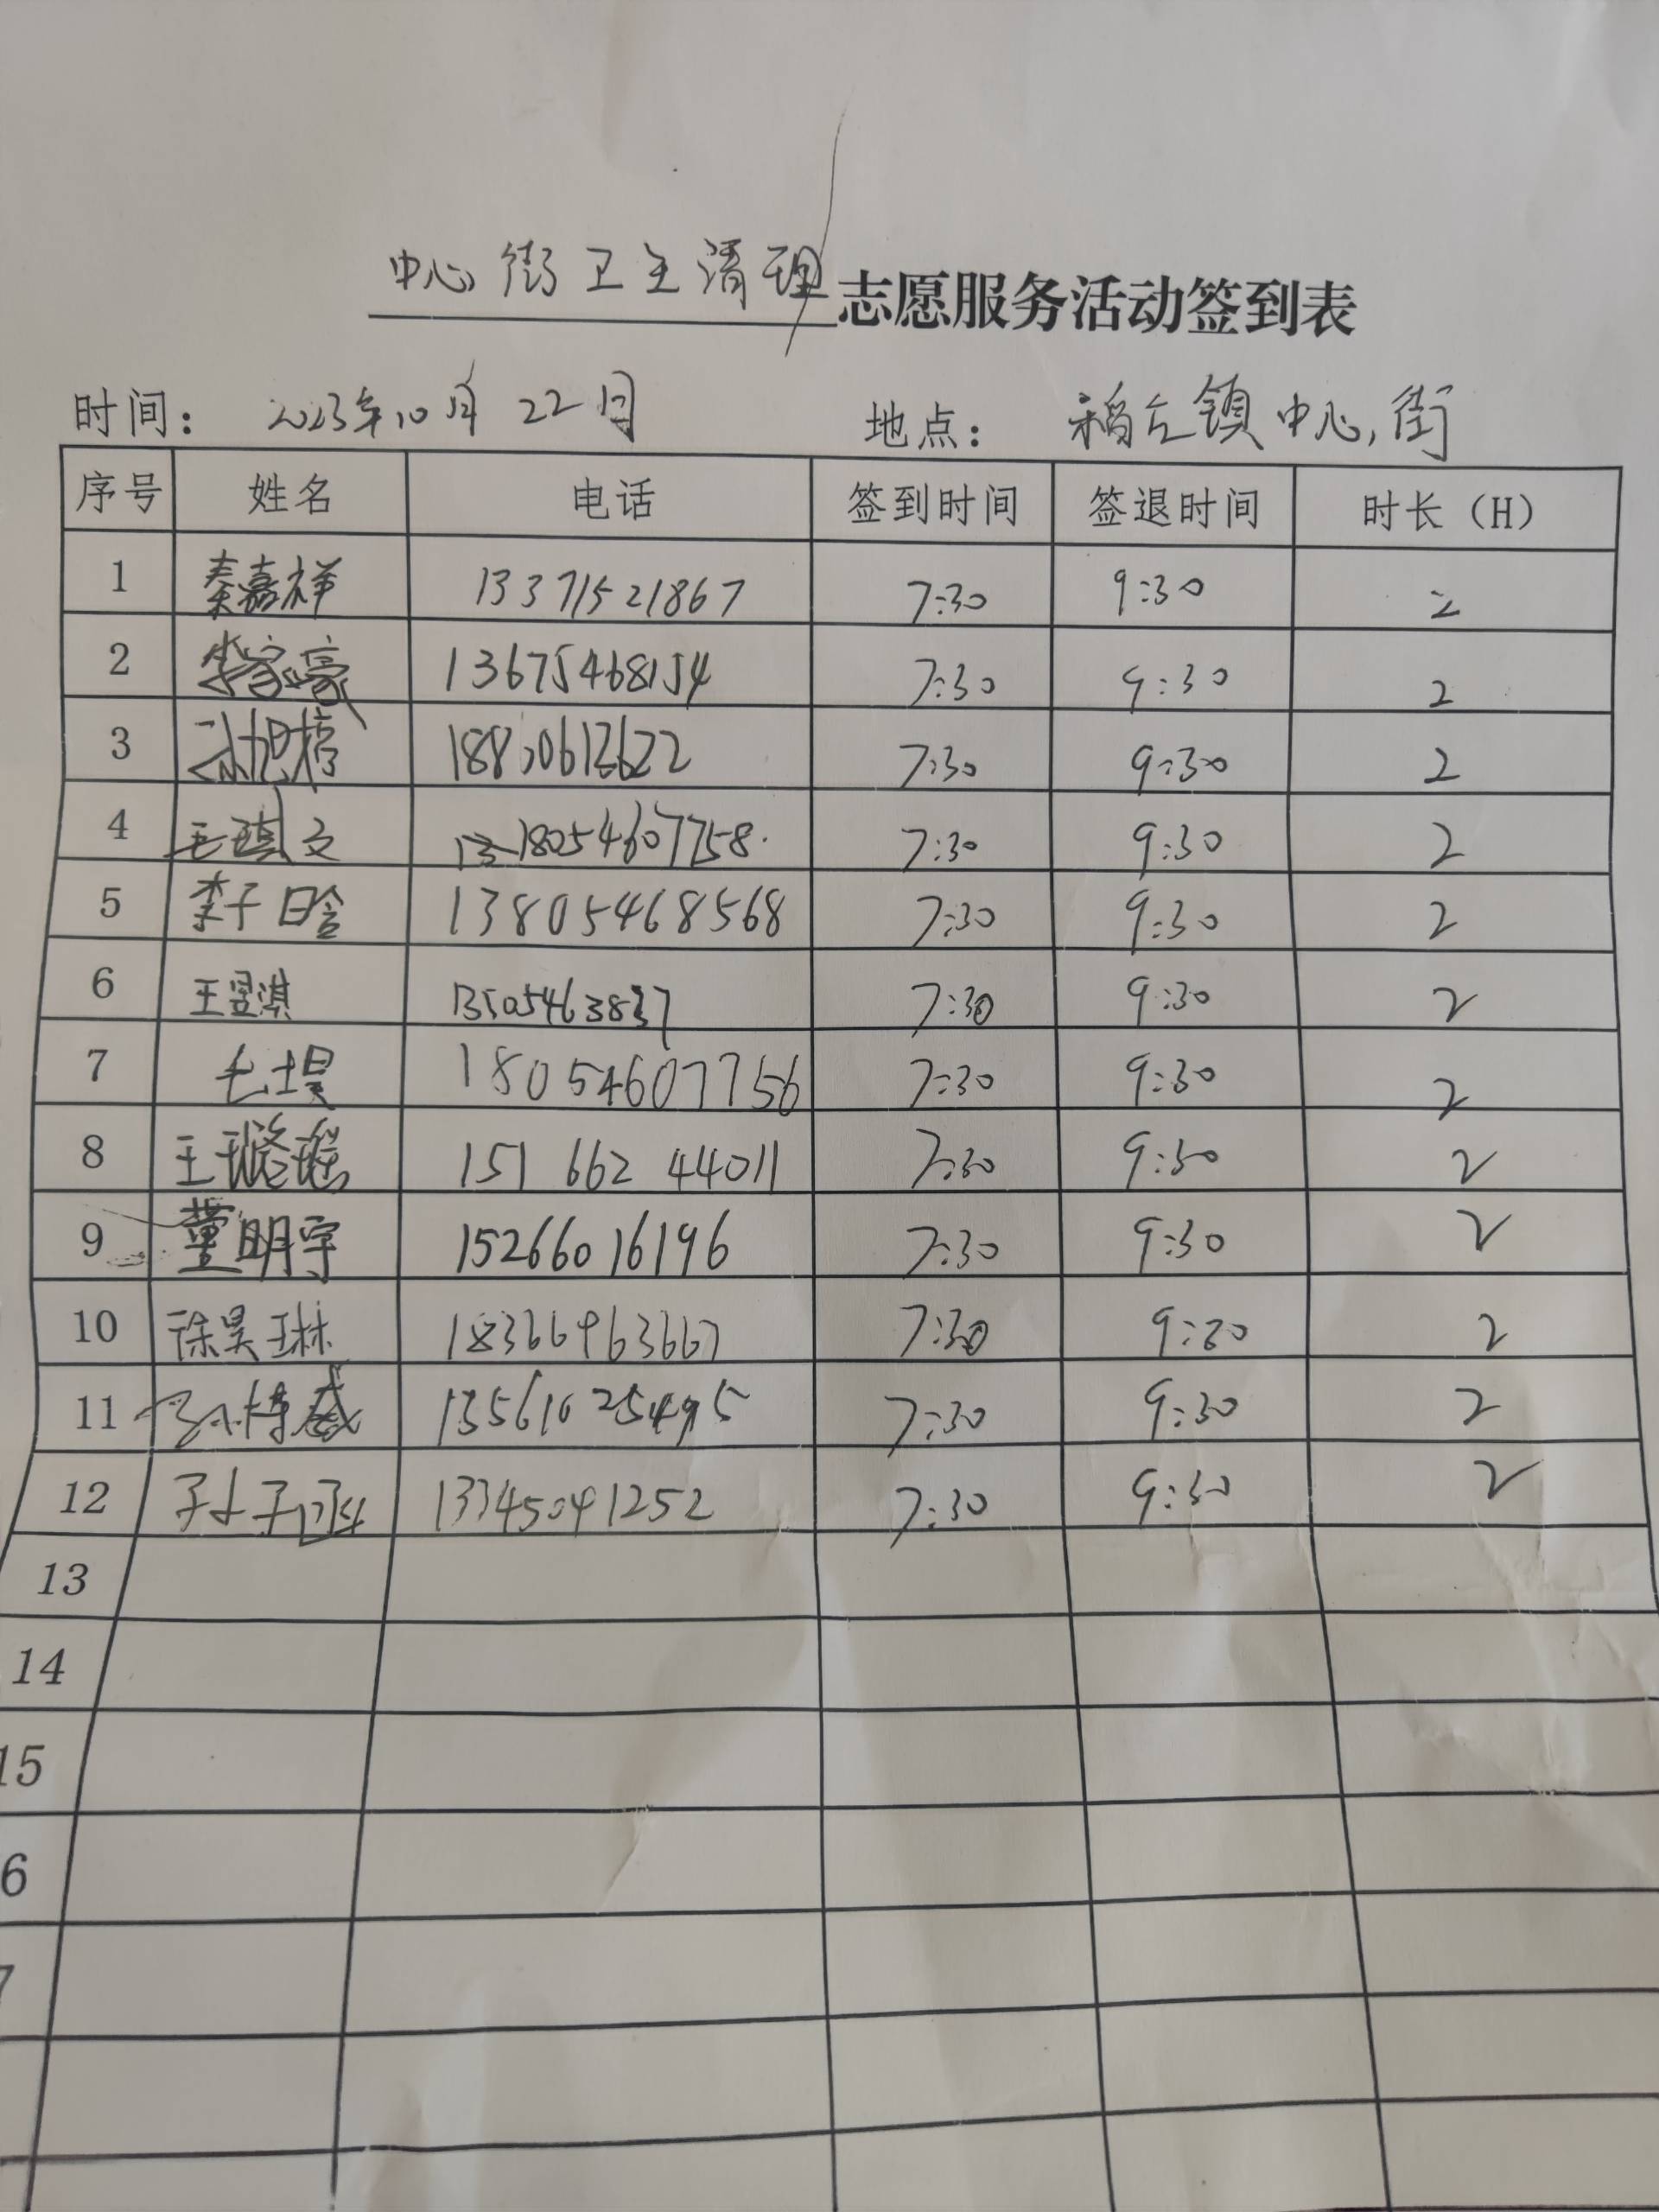 中心街卫生清理志愿服务活动签到表
时间： 2023年10月22日 地点： 稻庄镇中心街
序号 姓名 电话 签到时间 签退时间 时长（H）
1 秦嘉祥 13371521867 7:30 9:30 2
2 李家豪 13675468154 7:30 9:30 2
3 7:30 9:30 2
4 毛琪文 18054607758. 7:30 9:30 2
5 李子晗 13805468568 7:30 9:30 2
6 王昱淇 13505463837 7:30 9:30 2
7 18054607756 7:30 9:30 2
8 王璐瑶 151 662 44011 7:30 9:30 2
9 董明宇 15266016196 7:30 9:30 2
10 徐昊琳 18366963667 7:30 9:30 2
11 7:30 9:30 2
12 孙子涵 13345041252 7:30 9:30 2
13
14
15
6
7